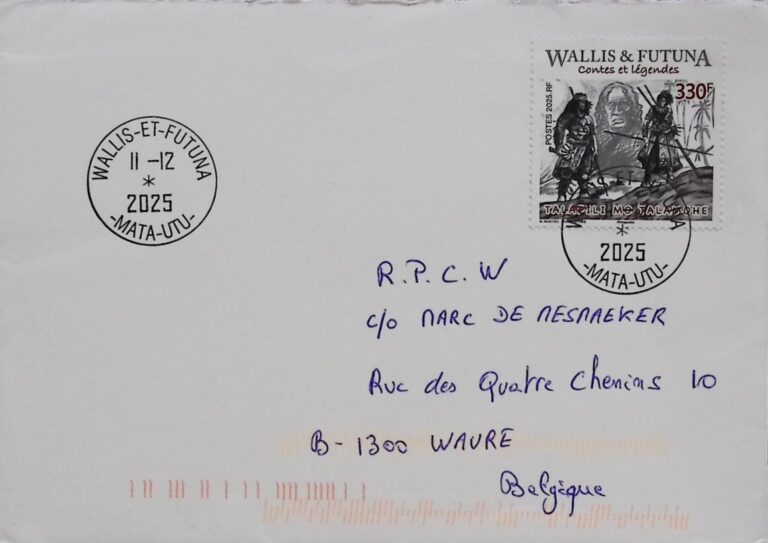 WALLIS & FUTUNA
Contes et légendes
330F
POSTES 2025.RF
TALAPILI MO TALAMOHE
WALLIS-ET-FUTUNA
11-12
*
2025
-MATA-UTU-
*
2025
-MATA-UTU-
R.P.C.W
c/o MARC DE MESMAEKER
Rue des Quatre Chemins 10
B-1300 WAVRE
Belgique